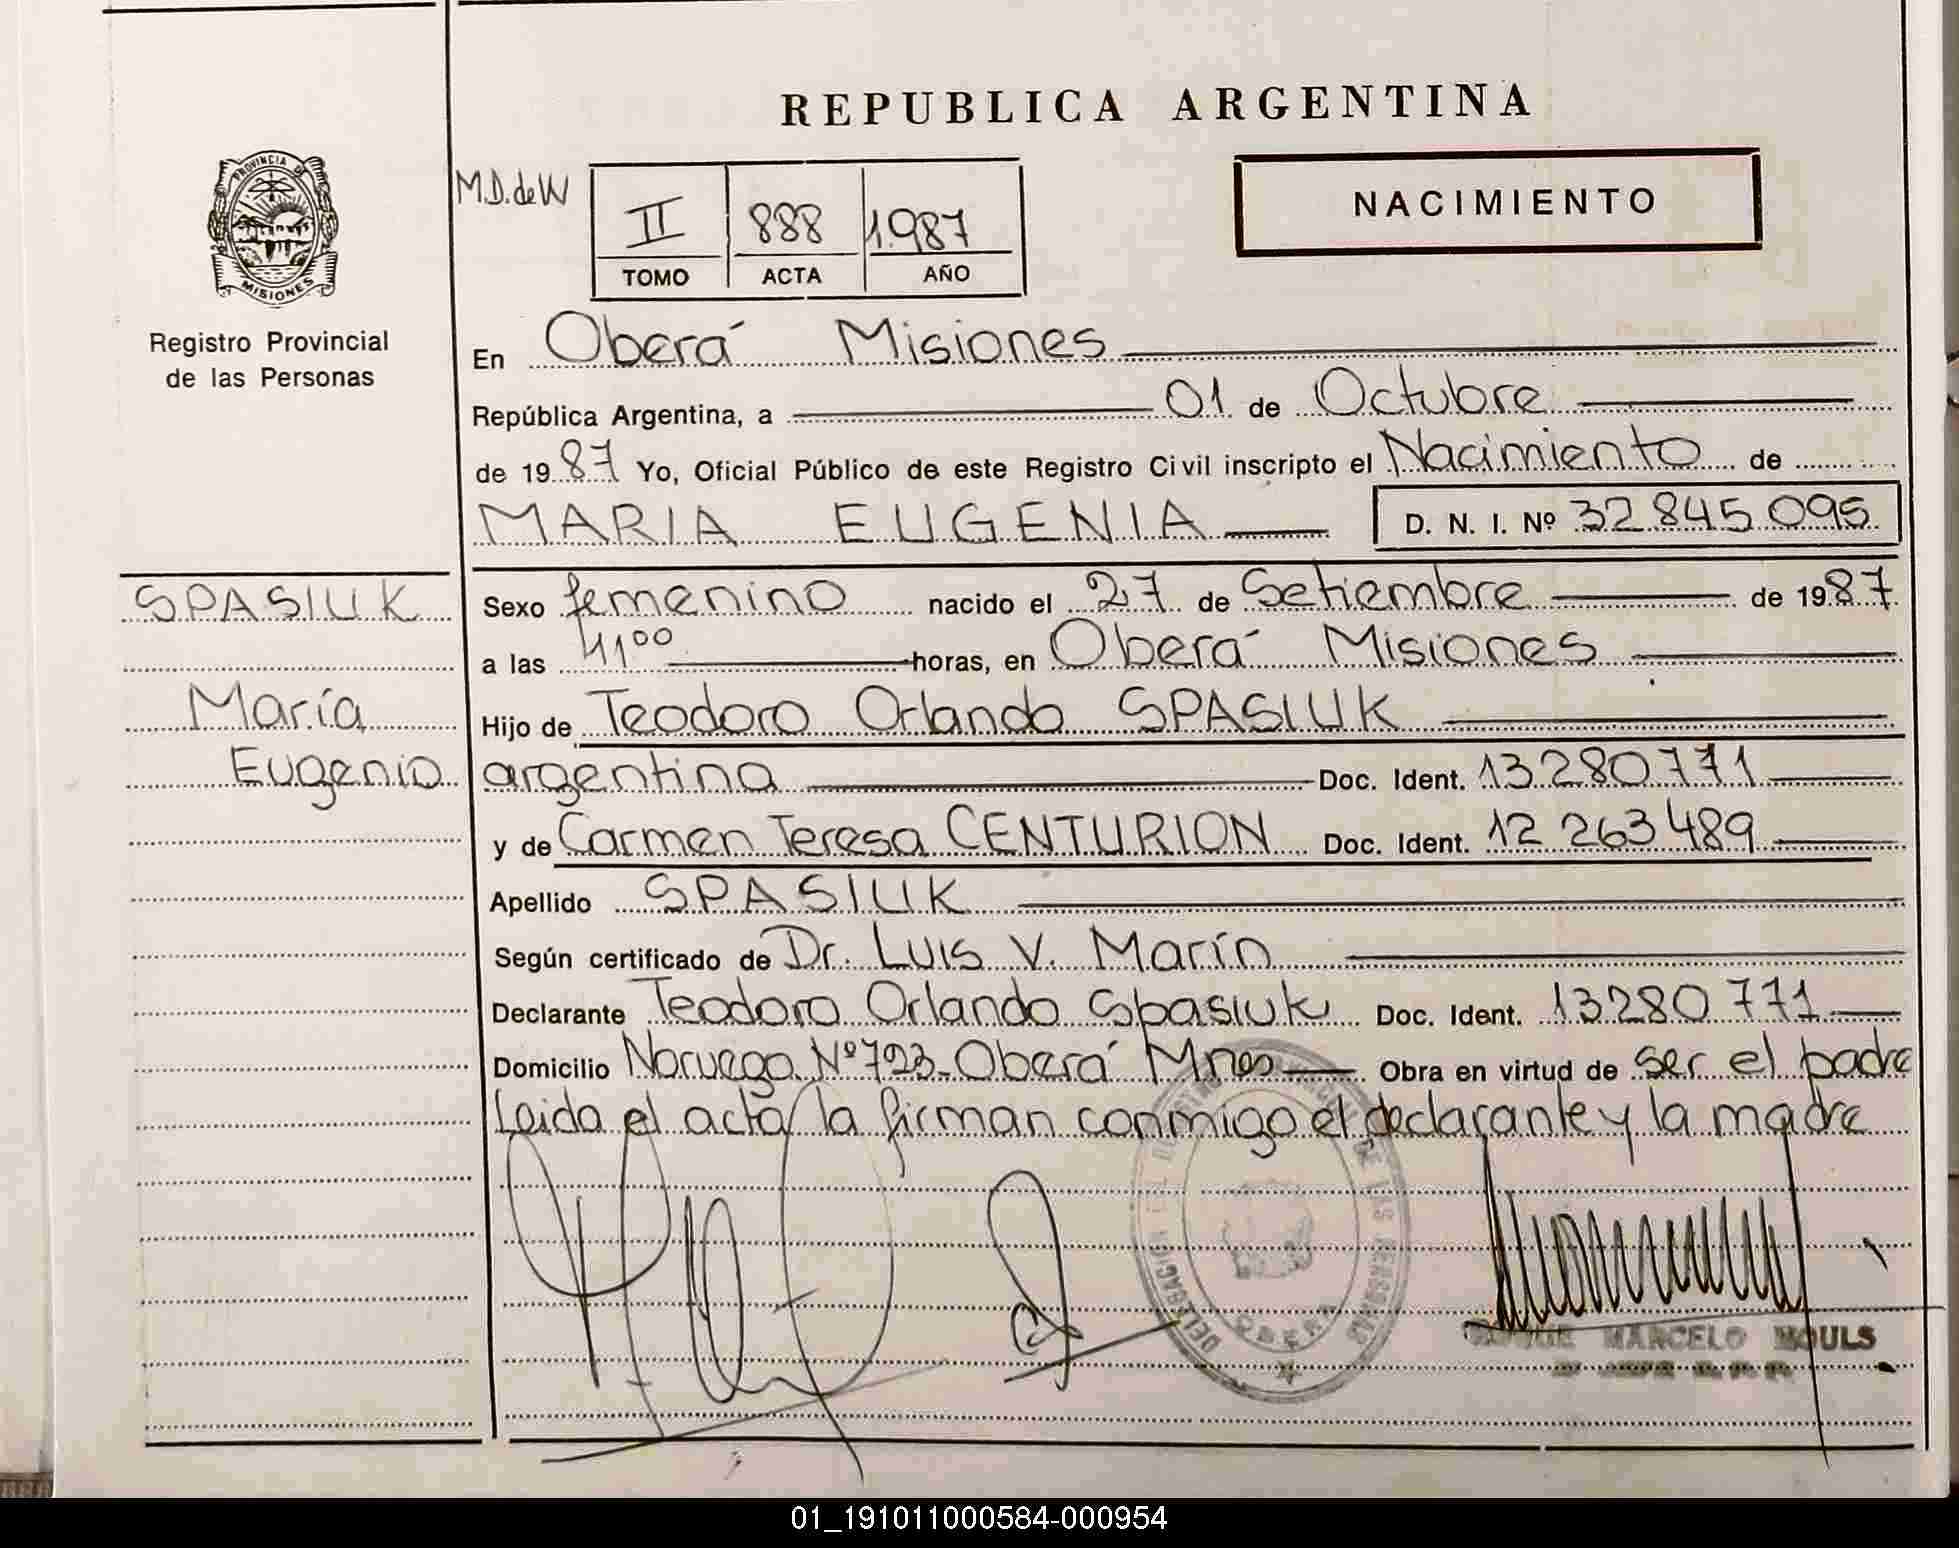 REPUBLICA ARGENTINA
PROVINCIA DE
MISIONES
Registro Provincial
de las Personas
M.D. de W
II 888 1.987
TOMO ACTA AÑO
NACIMIENTO
En Oberá Misiones
República Argentina, a 01 de Octubre
de 1987 Yo, Oficial Público de este Registro Civil inscripto el Nacimiento de
MARIA EUGENIA D. N. I. Nº 32 845 095
SPASIUK
María
Eugenia
Sexo femenino nacido el 27 de Setiembre de 1987
a las 11 00 horas, en Oberá Misiones
Hijo de Teodoro Orlando SPASIUK
argentina Doc. Ident. 13 280 771
y de Carmen Teresa CENTURION Doc. Ident. 12 263 489
Apellido SPASIUK
Según certificado de Dr. Luis V. Marín
Declarante Teodoro Orlando Spasiuk Doc. Ident. 13280 771
Domicilio Noruega Nº 723 - Oberá Mnes Obra en virtud de ser el padre
Leida el acta la firman conmigo el declarante y la madre
DE LAS PERSONAS
OBERA
MARCELO MOULS
01_191011000584-000954